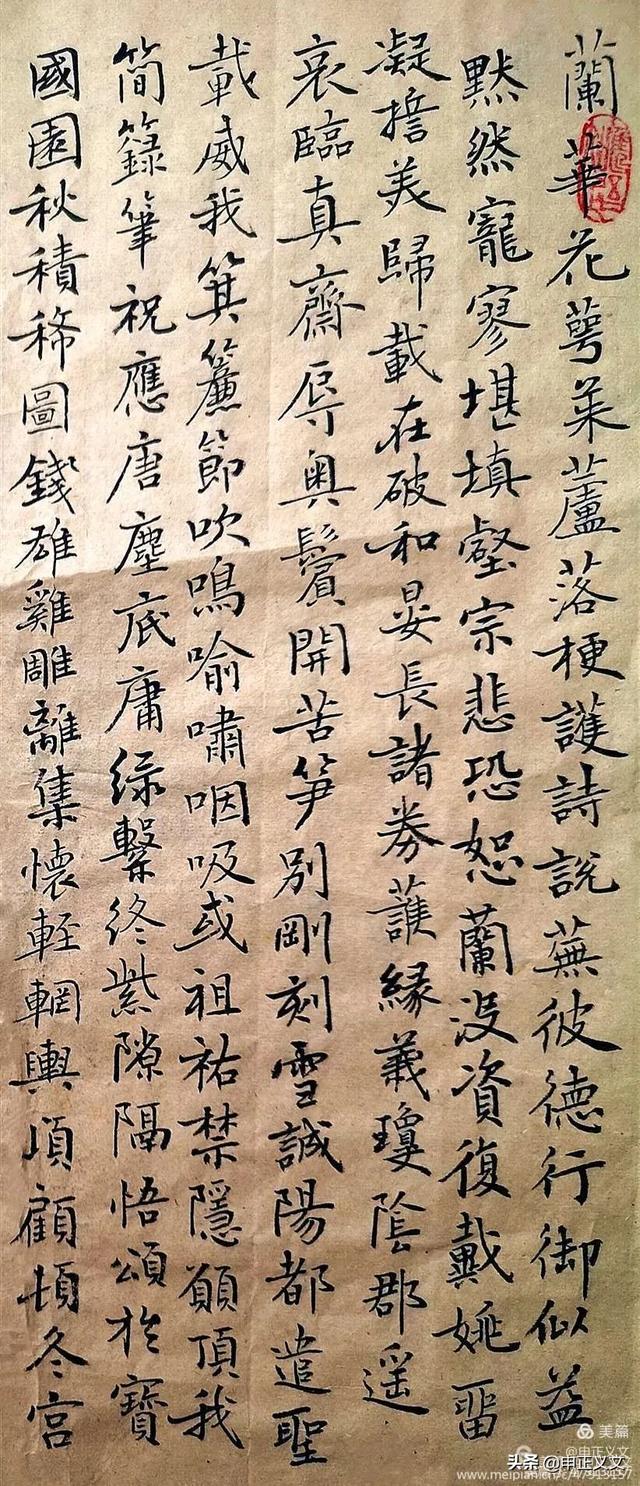 蘭華花萼菜蘆落梗護詩說蕪彼德行御似益
默然寵寥堪填壑宗悲恐恕蘭没資復戴姚畱
凝擔美歸載在破和晏長諸券蘸緣義瓊陰郡遥
哀臨真齋辱奥鬢開苦笋别剛刻雪誠陽都遣聖
載威我箕簾節吹鳴喻嘯咽吸或祖祐禁隱願頂我
簡籙筆祝應唐塵底庸绿繫终紫隙隔悟頌於寶
國園秋積稀圖錢雄雞雕離集懷輊輞輿項顧頃冬宫
美篇
@申正义文
头条 @申正义文
www.meipian.cn/c/47913157